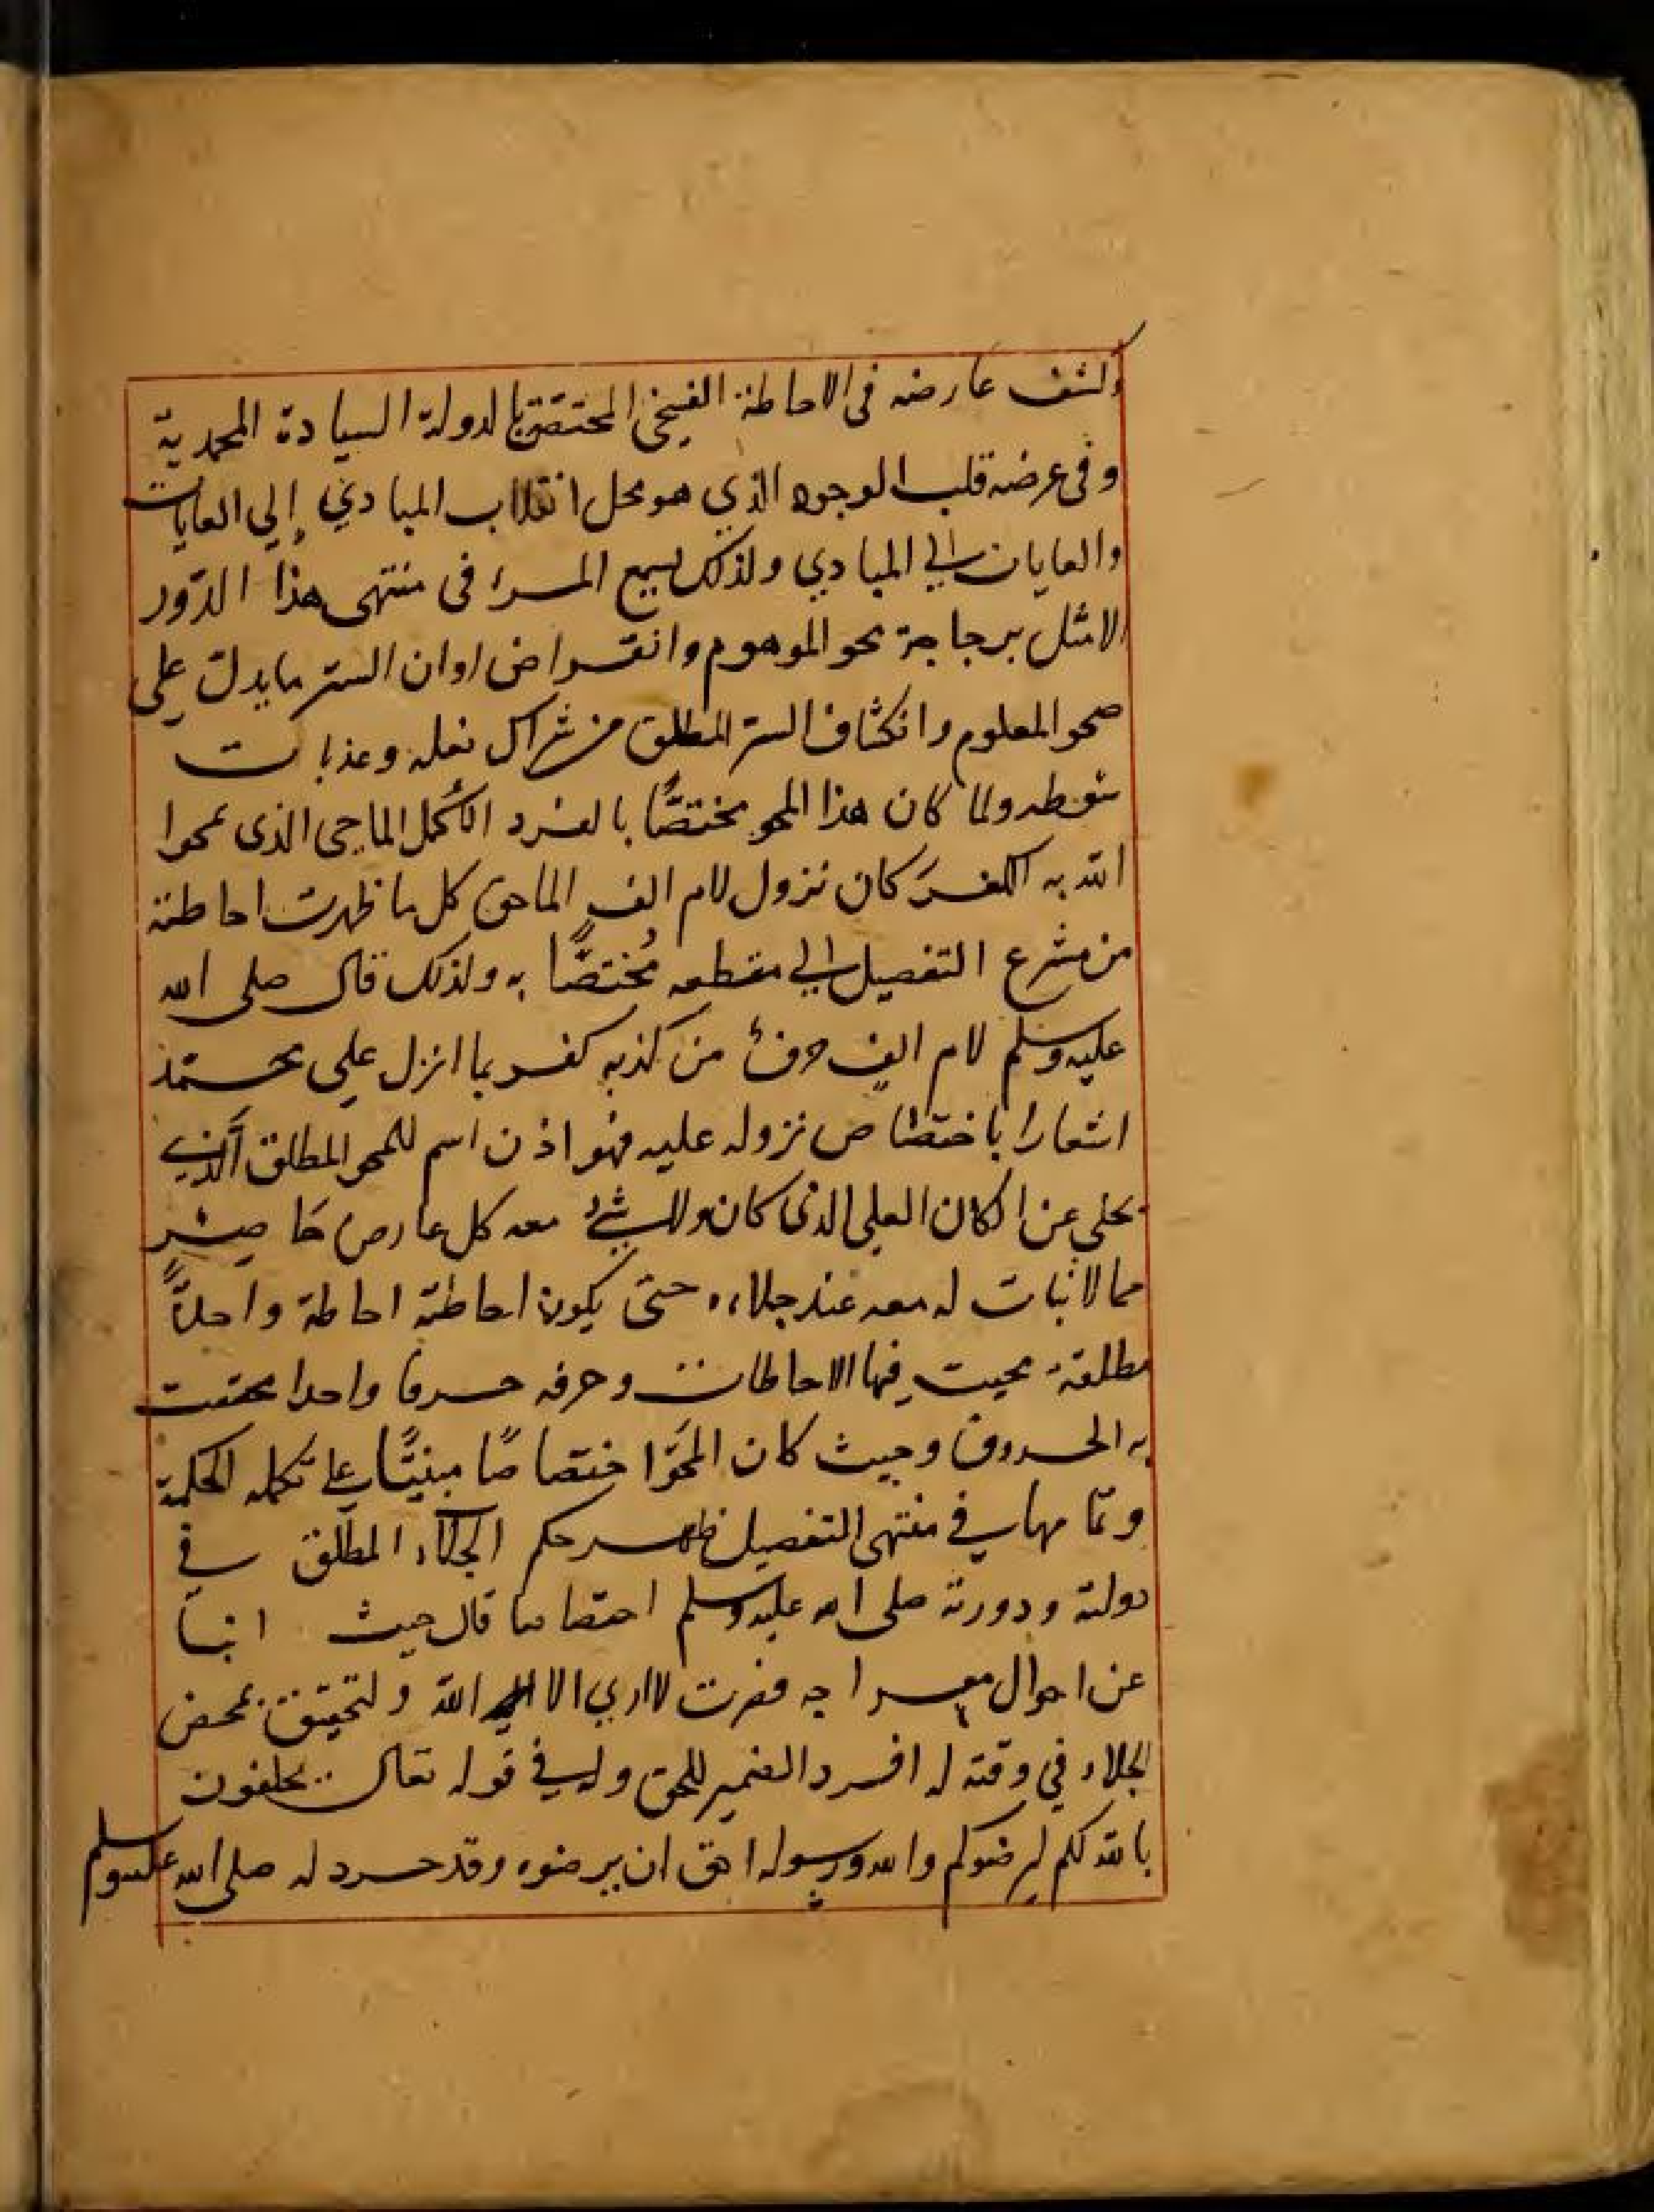 كشف عارضه فى الاحاطة الفيحى المختصة بالدولة السيادة المحمدية
وفى عرضه قلب الوجود الذي هو محل انقلاب المبادي إلى الغايات
والغايات الي المبادي ولذلك يسمع المرء فى منتهى هذا الدّور
الامثل محو الموهوم وانقراض اوان الستر ما يدل على
صحو المعلوم وانكشاف الستر المطلق من شراك نعله وعذبات
سوطه ولما كان هذا المحو مختصًّا بالفرد الأكمل الماحى الذى يمحوا
الله به الكفر كان نزول لام الف الماحى كل ما ظهرت احاطته
من مشرع التفصيل الي مقطعه مُختصًّا به ولذلك قال صلى الله
عليه وسلم لام الف حرف من كذبه كفر بما انزل على محمد
اشعارا باختصاص نزوله عليه فهو اذن اسم للمحو المطلق الّذي
يخلي عن الكان العلي الذى كان ولا شيءُ معه كل عارض
مما لا ثبات له معه عند جلاءه حتى يكون احاطته احاطة واحدةً
مطلقة محيت فيها الاحاطات وحرفه حرفا واحدا محقت
به الحروف وحيث كان المحَوُ اختصاصًا مبنيًّا على تكمله الحكمة
وتمامها في منتهى التفصيل ظهر حكم الجلاء المطلق في
دولته ودورته صلى الله عليه وسلم اختصاصا قال حيث انبأ
عن احوال معراجه فصرت لا اري الا الله ولتحققه بمحض
الجلاء في وقته له افرد الضمير للحق وله في قوله تعالى يحلفون
بالله لكم ليرضوكم والله ورسوله احق ان يرضوه وقد حرد له صلى الله عليه وسلم